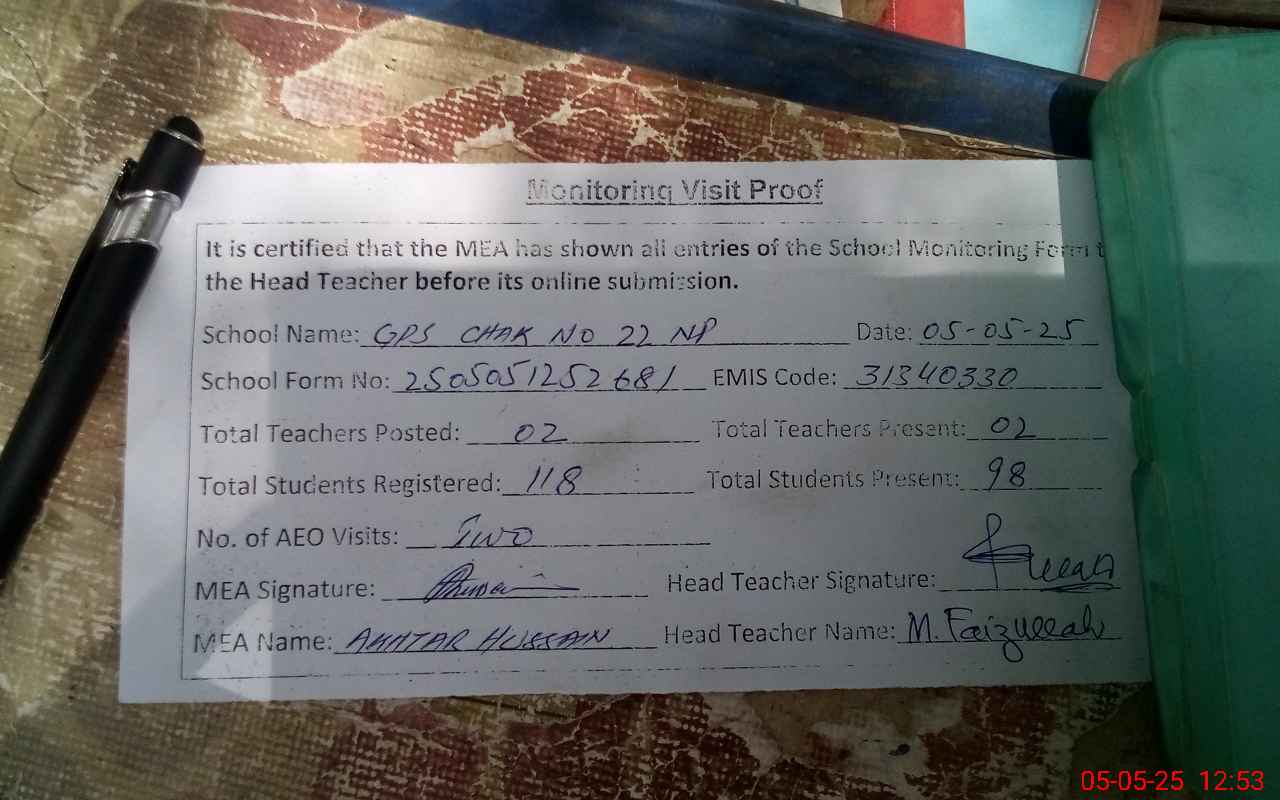 Monitoring Visit Proof
It is certified that the MEA has shown all entries of the School Monitoring Form t
the Head Teacher before its online submission.
School Name: GPS CHAK NO 22 NP Date: 05-05-25
School Form No: 2505051252681 EMIS Code: 31340330
Total Teachers Posted: 02 Total Teachers Present: 02
Total Students Registered: 118 Total Students Present: 98
No. of AEO Visits: Two
MEA Signature: Head Teacher Signature:
MEA Name: AKHTAR HUSSAIN Head Teacher Name: M. Faizullah
05-05-25 12:53